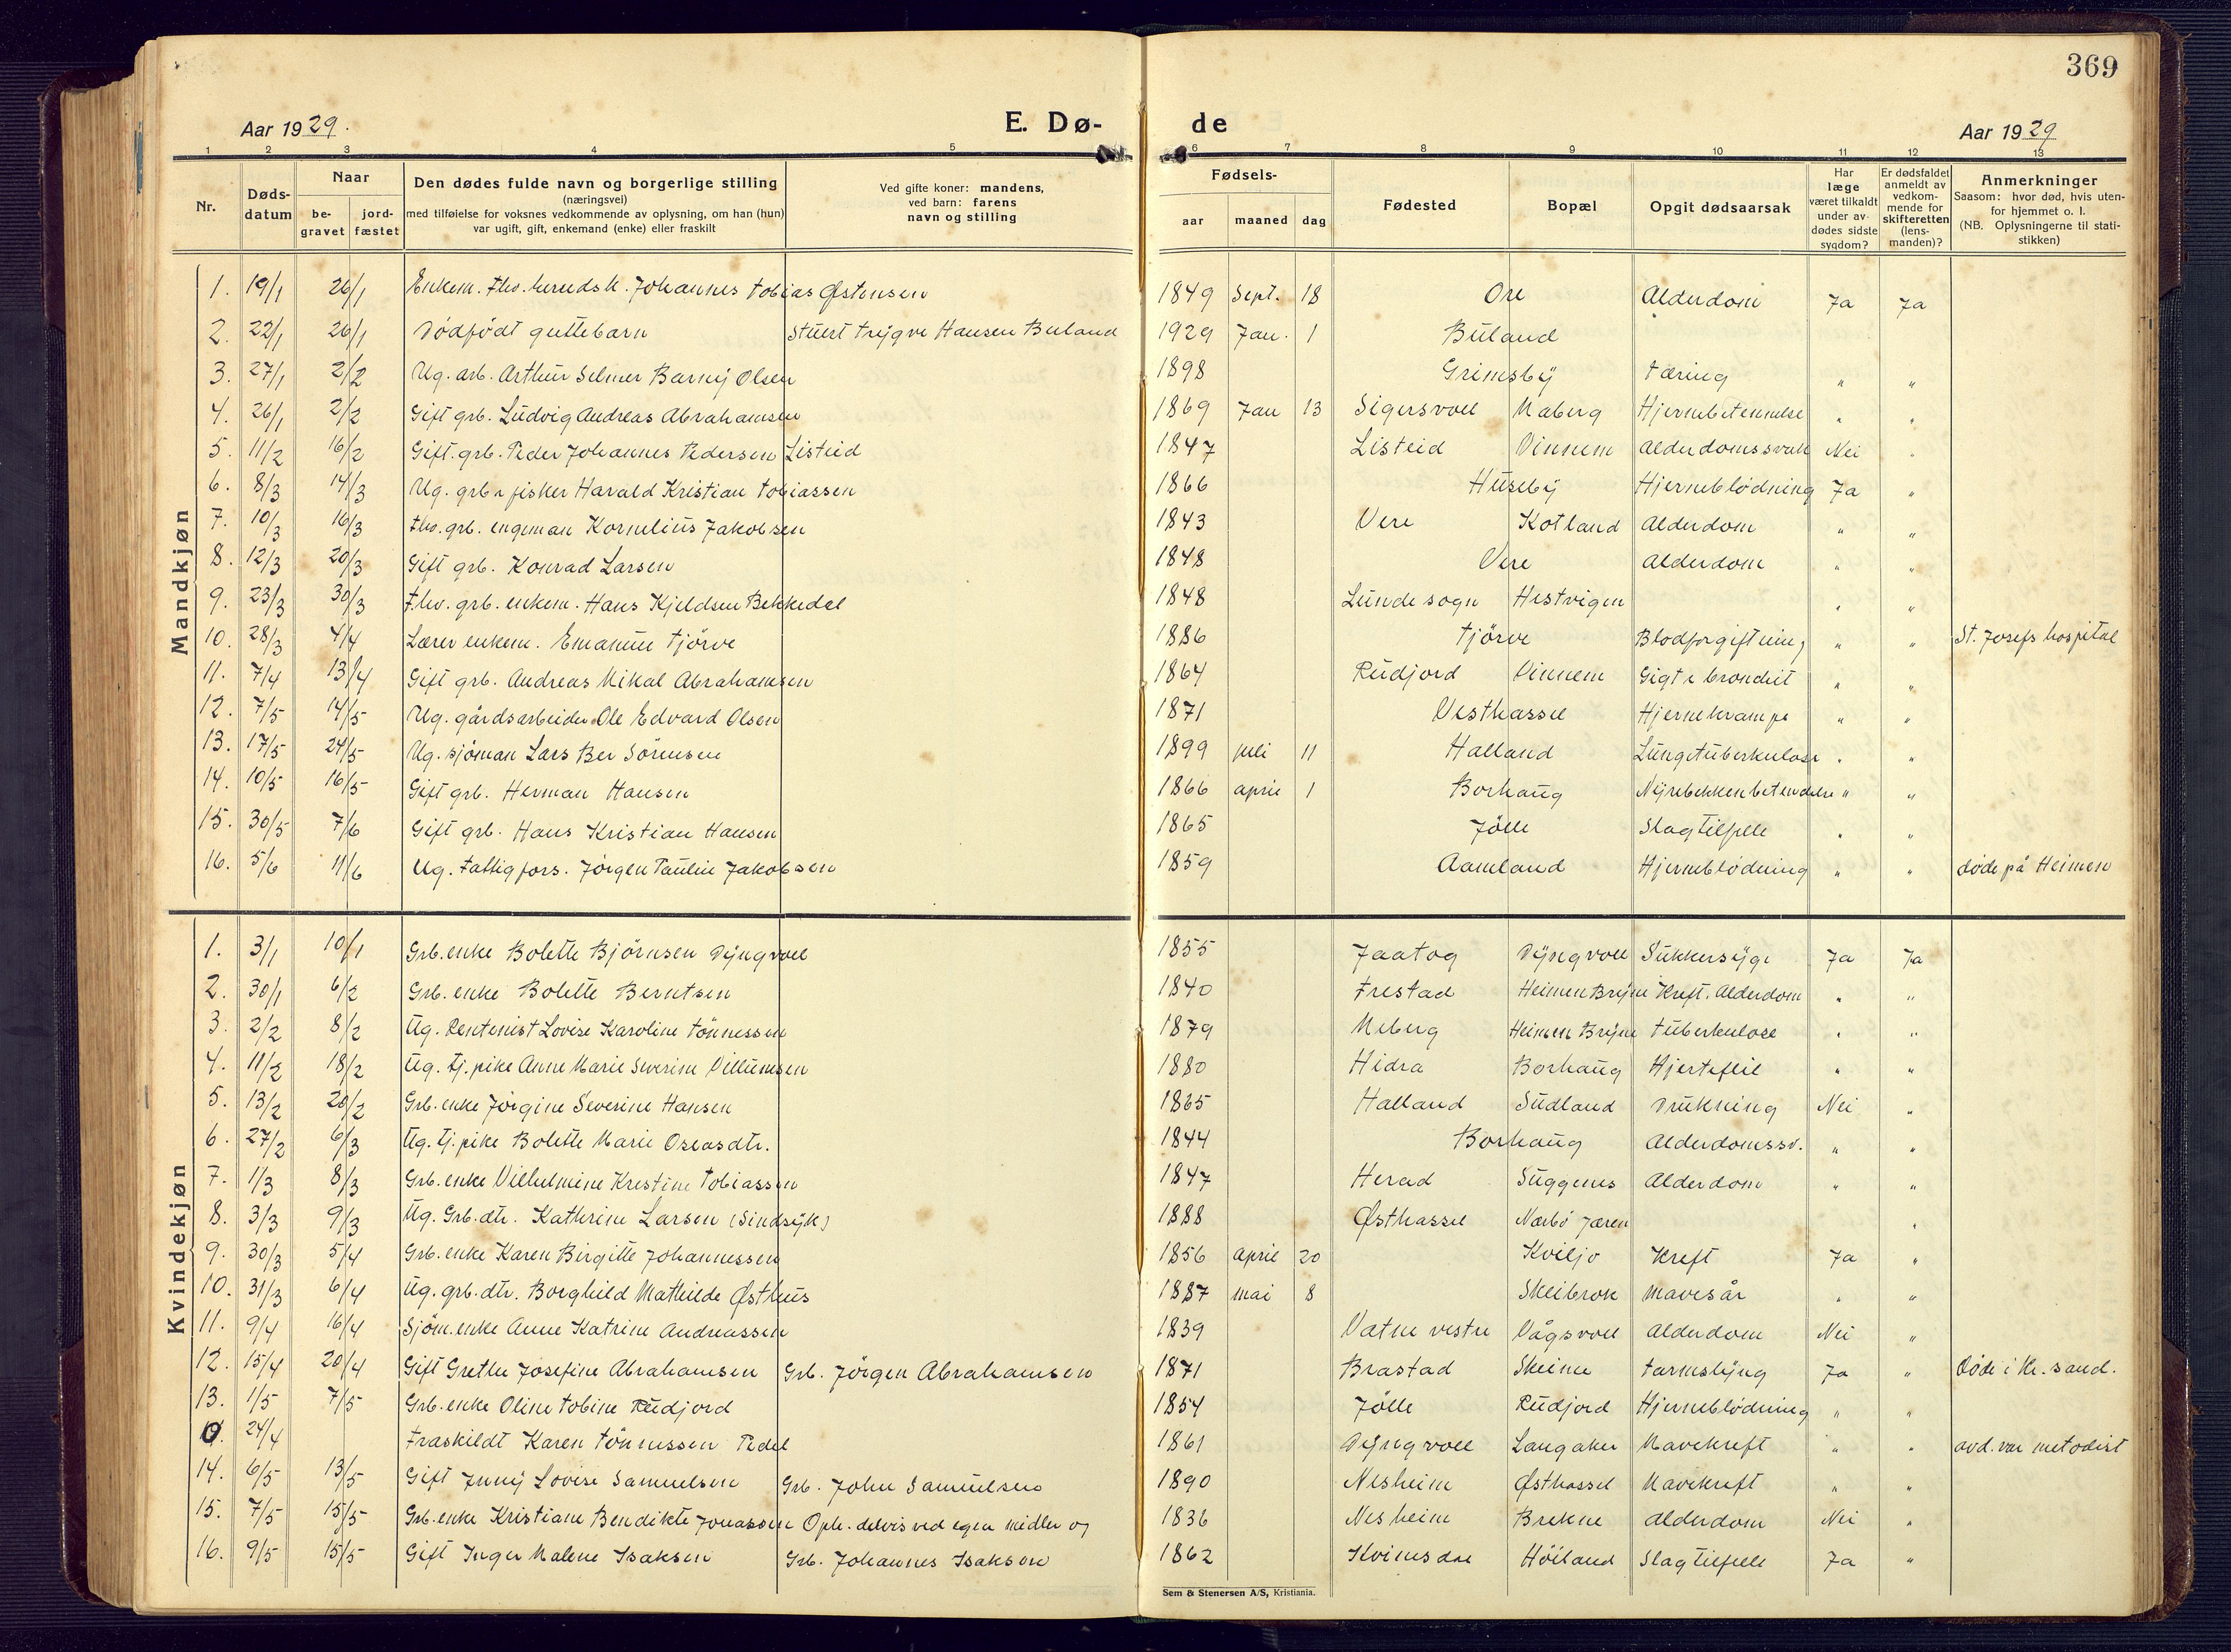 369
Aar 1929.
E. Dø-
de
Aar 1929
1 2 3 4 5 6 7 8 9 10 11 12 13
Nr.
Døds-
datum
Naar
be-
gravet
jord-
fæstet
Den dødes fulde navn og borgerlige stilling
(næringsvei)
med tilføielse for voksnes vedkommende av oplysning, om han (hun)
var ugift, gift, enkemand (enke) eller fraskilt
Ved gifte koner: mandens,
ved barn: farens
navn og stilling
Fødsels-
aar maaned dag
Fødested
Bopæl
Opgit dødsaarsak
Har
læge
været tilkaldt
under av-
dødes sidste
sygdom?
Er dødsfaldet
anmeldt av
vedkom-
mende for
skifteretten
(lens-
manden)?
Anmerkninger
Saasom: hvor død, hvis uten-
for hjemmet o. l.
(NB. Oplysningerne til stati-
stikken)
Mandkjøn
1. 19/1 26/1 Enkem. fhv. Johannes Tobias Østensen 1849 Sept. 18 Ore Alderdom Ja Ja
2. 22/1 26/1 Dødfødt guttebarn Stuert Trygve Hansen Buland 1929 Jan. 1 Buland
3. 27/1 2/2 Ug. arb. Arthur Selmer Barny Olsen 1898 Grimsby Tæring " "
4. 26/1 2/2 Gift grb. Ludvig Andreas Abrahamsen 1869 Jan 13 Sigersvoll Maberg Hjernebetennelse " "
5. 11/2 16/2 Gift. grb. Peder Johannes Pedersen Listeid 1847 Listeid Vinnem Alderdomssvak Nei "
6. 8/3 14/3 Ug. grb. & fisker Harald Kristian Tobiassen 1866 Huseby Hjerneblødning Ja "
7. 10/3 16/3 fhv. grb. engeman Kornelius Jakobsen 1843 Vere Kotland Alderdom " "
8. 12/3 20/3 Gift grb. Konrad Larsen 1848 Vere Alderdom " "
9. 23/3 30/3 fhv. grb. enkem. Hans Kjeldsen Bekkedal 1848 Lunde sogn Hestvigen " "
10. 28/3 4/4 Lærer enkem. Emanuel Tjörve 1886 Tjörve Blodforgiftning " " St. Josefs hospital
11. 7/4 13/4 Gift grb. Andreas Mikal Abrahamsen 1864 Rudjord Vinnem Gigt & bronchit " "
12. 7/5 14/5 Ug. gårdsarbeider Ole Edvard Olsen 1871 Vesthassel Hjernekrampe " "
13. 17/5 24/5 Ug. sjöman Lars Ber Sörensen 1899 juli 11 Halland Lungetuberkulose " "
14. 10/5 16/5 Gift grb. Herman Hansen 1866 april 1 Borhaug Nyrebekkenbetendelse " "
15. 30/5 7/6 Gift grb. Hans Kristian Hansen 1865 Jölle Slagtilfelle " "
16. 5/6 11/6 Ug. fattigfors. Jörgen Pauline Jakobsen 1859 Aamland Hjerneblödning " " døde på Heimen
Kvindekjøn
1. 3/1 10/1 Grb. enke Bolette Bjørnsen Dyngvoll 1855 Jaatog Dyngvoll Sukkersyge Ja Ja
2. 30/1 6/2 Grb. enke Bolette Berntsen 1840 Frestad Heimen Bryne Kreft. Alderdom " "
3. 2/2 8/2 Ug. Rentenist Lovise Karoline Tönnessen 1879 Meberg Heimen Bryne Tuberkulose " "
4. 11/2 18/2 Ug. tj. pike Anne Marie Severine Villumsen 1880 Hidra Borhaug Hjertefeil " "
5. 13/2 20/2 Grb. enke Jörgine Severine Hansen 1865 Halland Sudland Drukning Nei "
6. 27/2 6/3 Ug. tj. pike Bolette Marie Oseasdtr. 1844 Borhaug Alderdomssv. " "
7. 1/3 8/3 Grb. enke Vilhelmine Kristine Tobiassen 1847 Herad Suggenes Alderdom " "
8. 3/3 9/3 Ug. Grb. dtr. Kathrine Larsen (Sindsyk) 1888 Østhassel Nærbö Jæren "
9. 30/3 5/4 Grb. enke Karen Birgitte Johannessen 1856 april 20 Kviljo Kreft Ja "
10. 31/3 6/4 Ug. grb. dtr. Borghild Mathilde Østhus 1887 mai 8 Skeibrok Mavesår " "
11. 9/4 16/4 Sjöm. enke Anne Katrine Andreassen 1839 Vatne vestre Vågsvoll Alderdom Nei "
12. 15/4 20/4 Gift Grethe Josefine Abrahamsen Grb. Jörgen Abrahamsen 1871 Brastad Skeime Tarmslyng Ja " Döde i Kr. sand.
13. 1/5 7/5 Grb. enke Oline Tobine Rudjord 1854 Jölle Rudjord Hjerneblödning " "
0. 24/4 Fraskildt Karen Tönnessen Pedel 1861 Dyngvoll Langaker Mavekreft " " avd. var metodist
14. 6/5 13/5 Gift Jenny Lovise Samuelsen Grb. John Samuelsen 1890 Nesheim Østhassel Mavekreft " "
15. 7/5 15/5 Grb. enke Kristiane Bendikte Jonassen Oph. delvis ved egen midler og 1836 Nesheim Brekne Alderdom Nei "
16. 9/5 15/5 Gift Inger Malene Isaksen Grb. Johannes Isaksen 1862 Kvinesdal Höiland Slagtilfelle Ja "
Sem & Stenersen A/S, Kristiania.